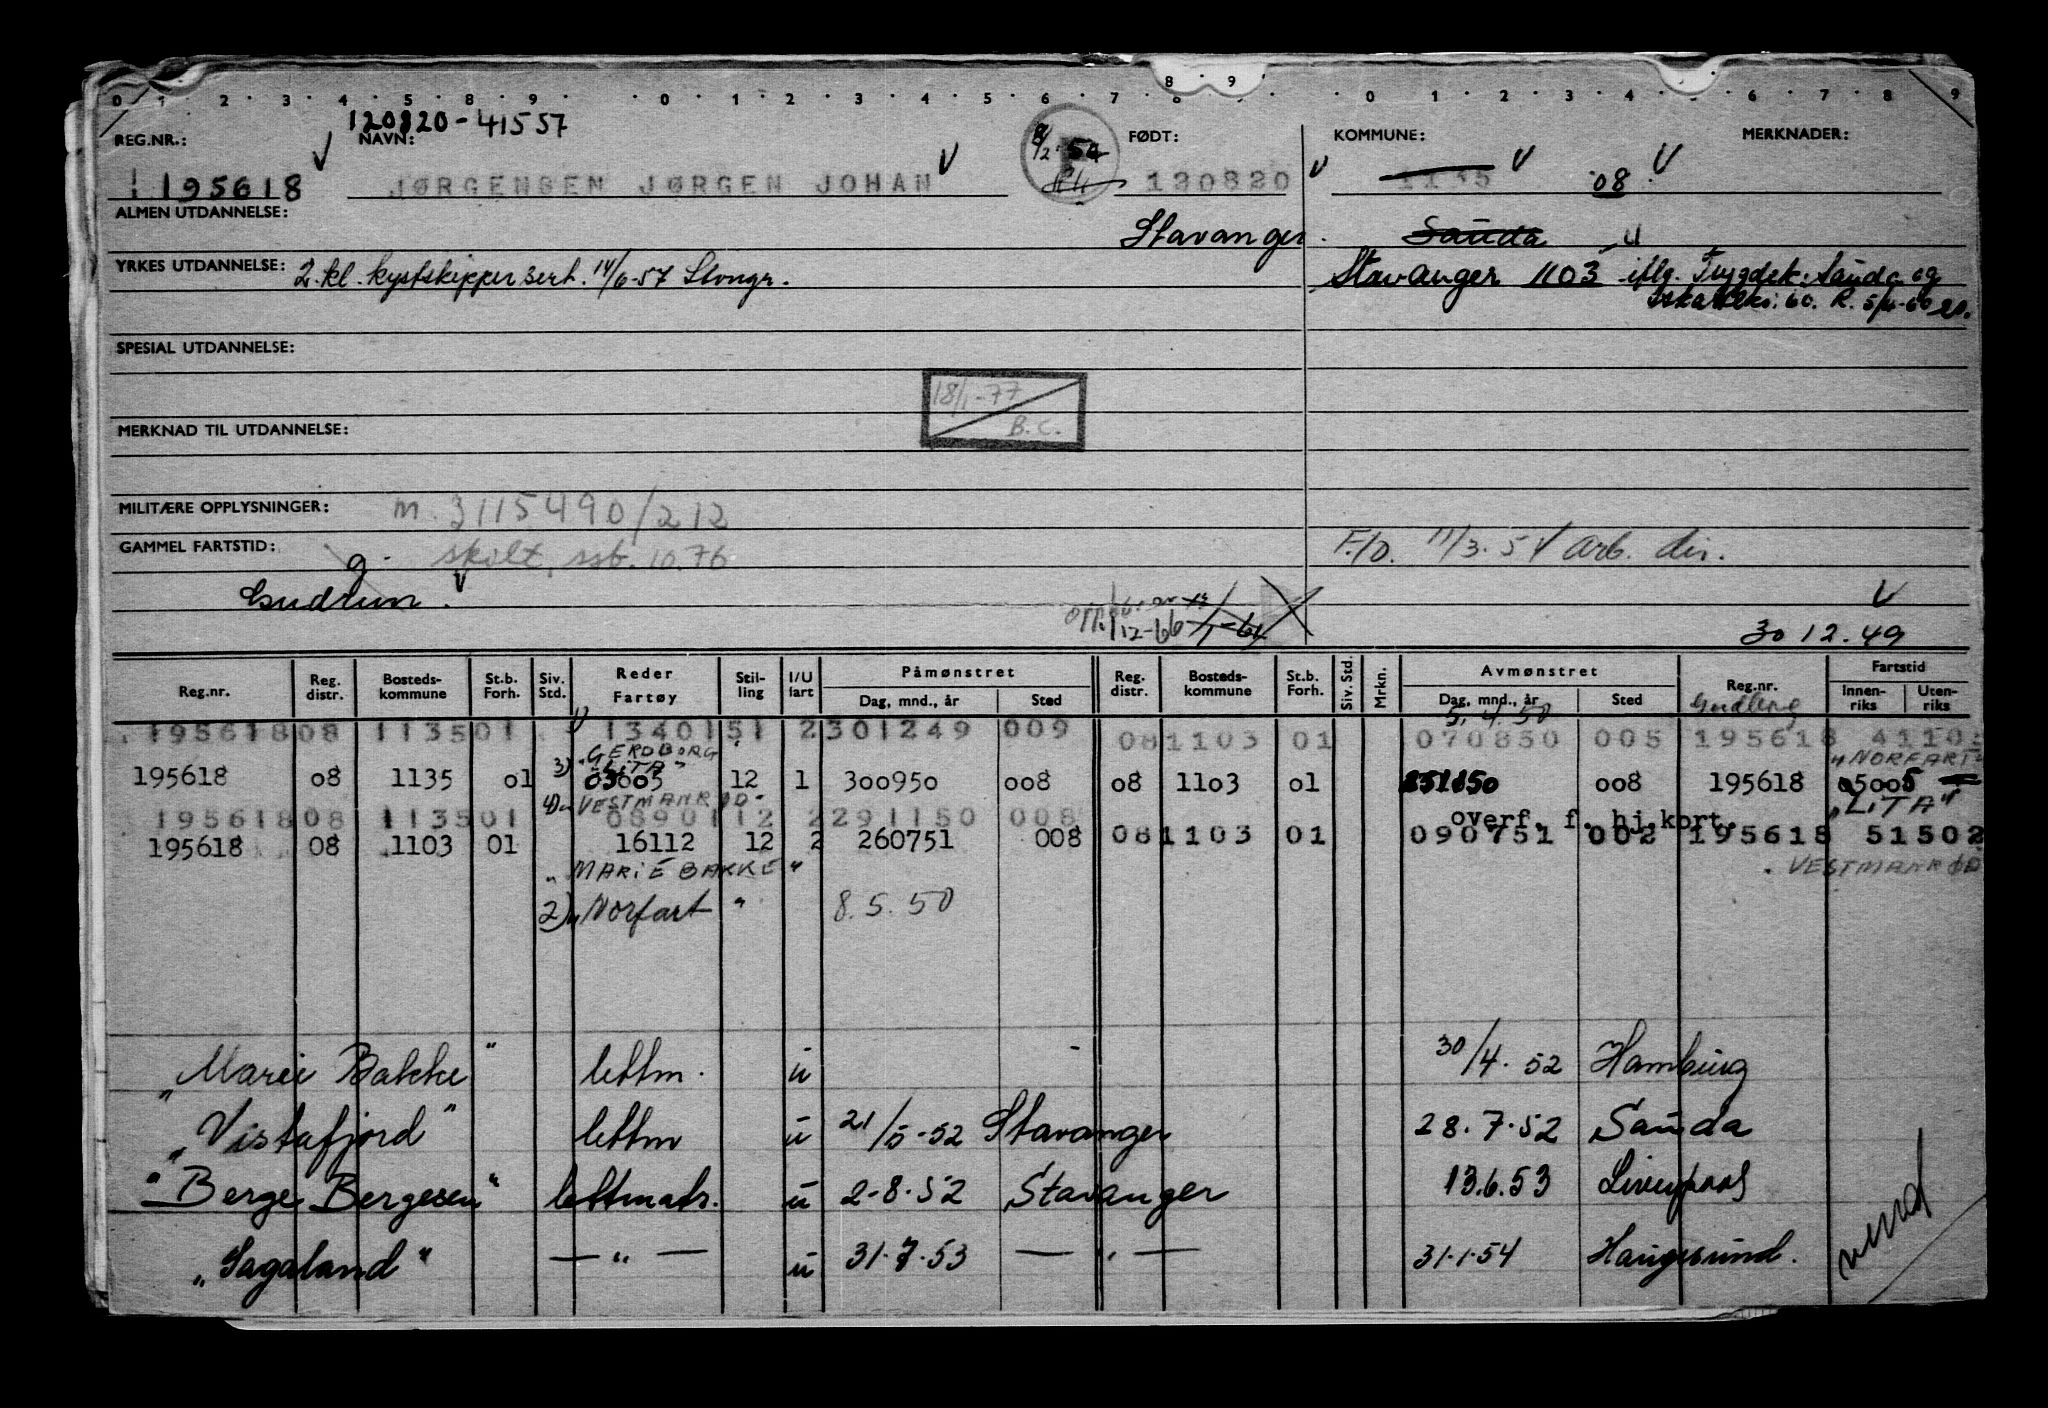 0 1 2 3 4 5 8 9 0 1 2 3 4 5 6 7 8 9 0 1 2 3 4 6 7 8 9
120820-41557
REG.NR.: NAVN: FØDT: KOMMUNE: MERKNADER:
195618 JØRGENSEN JØRGEN JOHAN 120820 1135 08
ALMEN UTDANNELSE: Stavanger. Sauda
YRKES UTDANNELSE: 2. kl. kystskipper sert. 14/6-57 Stvngr. Stavanger 1103 iflg. Trygdek. Sauda og
60. R. 5/4-60
SPESIAL UTDANNELSE:
18/1-77
B.C.
MERKNAD TIL UTDANNELSE:
MILITÆRE OPPLYSNINGER: m. 3115490/212
GAMMEL FARTSTID: skilt, ssb. 10.76 F./D. 11/3.54 Arb. dir.
g.
Gudrun.
12-66
30 12.49
Reg.nr. Reg. distr. Bosteds- kommune St.b. Forh. Siv. Std. Reder Fartøy Stil- ling I/U fart Påmønstret Dag, mnd., år Sted Reg. distr. Bosteds- kommune St.b. Forh. Siv. Std. Mrkn. Avmønstret Dag, mnd., år Sted Reg.nr. Fartstid Innen- riks Uten- riks
5.4.50
195618 08 1135 01 1340151 2 301249 009 08 1103 01 070850 005 195618
3) "GERDBORG
"LITA" "NORFART"
195618 08 1135 01 03005 12 1 300950 008 08 1103 01 008 195618
4) "VESTMANRØD" "LITA"
195618 08 1135 01 0890112 2 291150 008 overf. f. hj.kort.
08 1103 01 090751 002 195618 51502
195618 08 1103 01 16112 12 2 260751 008
"MARIE BAKKE" "VESTMANRØD
2) "Norfart" 8.5.50
"Marie Bakke" lettm. u 30/4.52 Hamburg
"Vistafjord" lettm u 21/5-52 Stavanger 28.7.52 Sauda
"Berge Bergesen" lettmatr. u 2-8.52 Stavanger 13.6.53 Liverpool
"Sagaland" — " — u 31.7.53 — " — 31.1.54 Haugesund.
vend